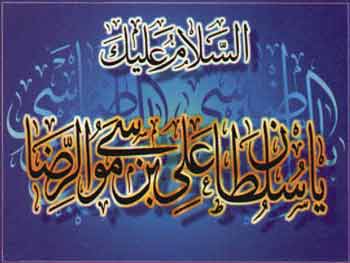 السَّلامُ عَلَيكَ
يا سُلطان عَلِي بنِ موسَى الرِّضَا